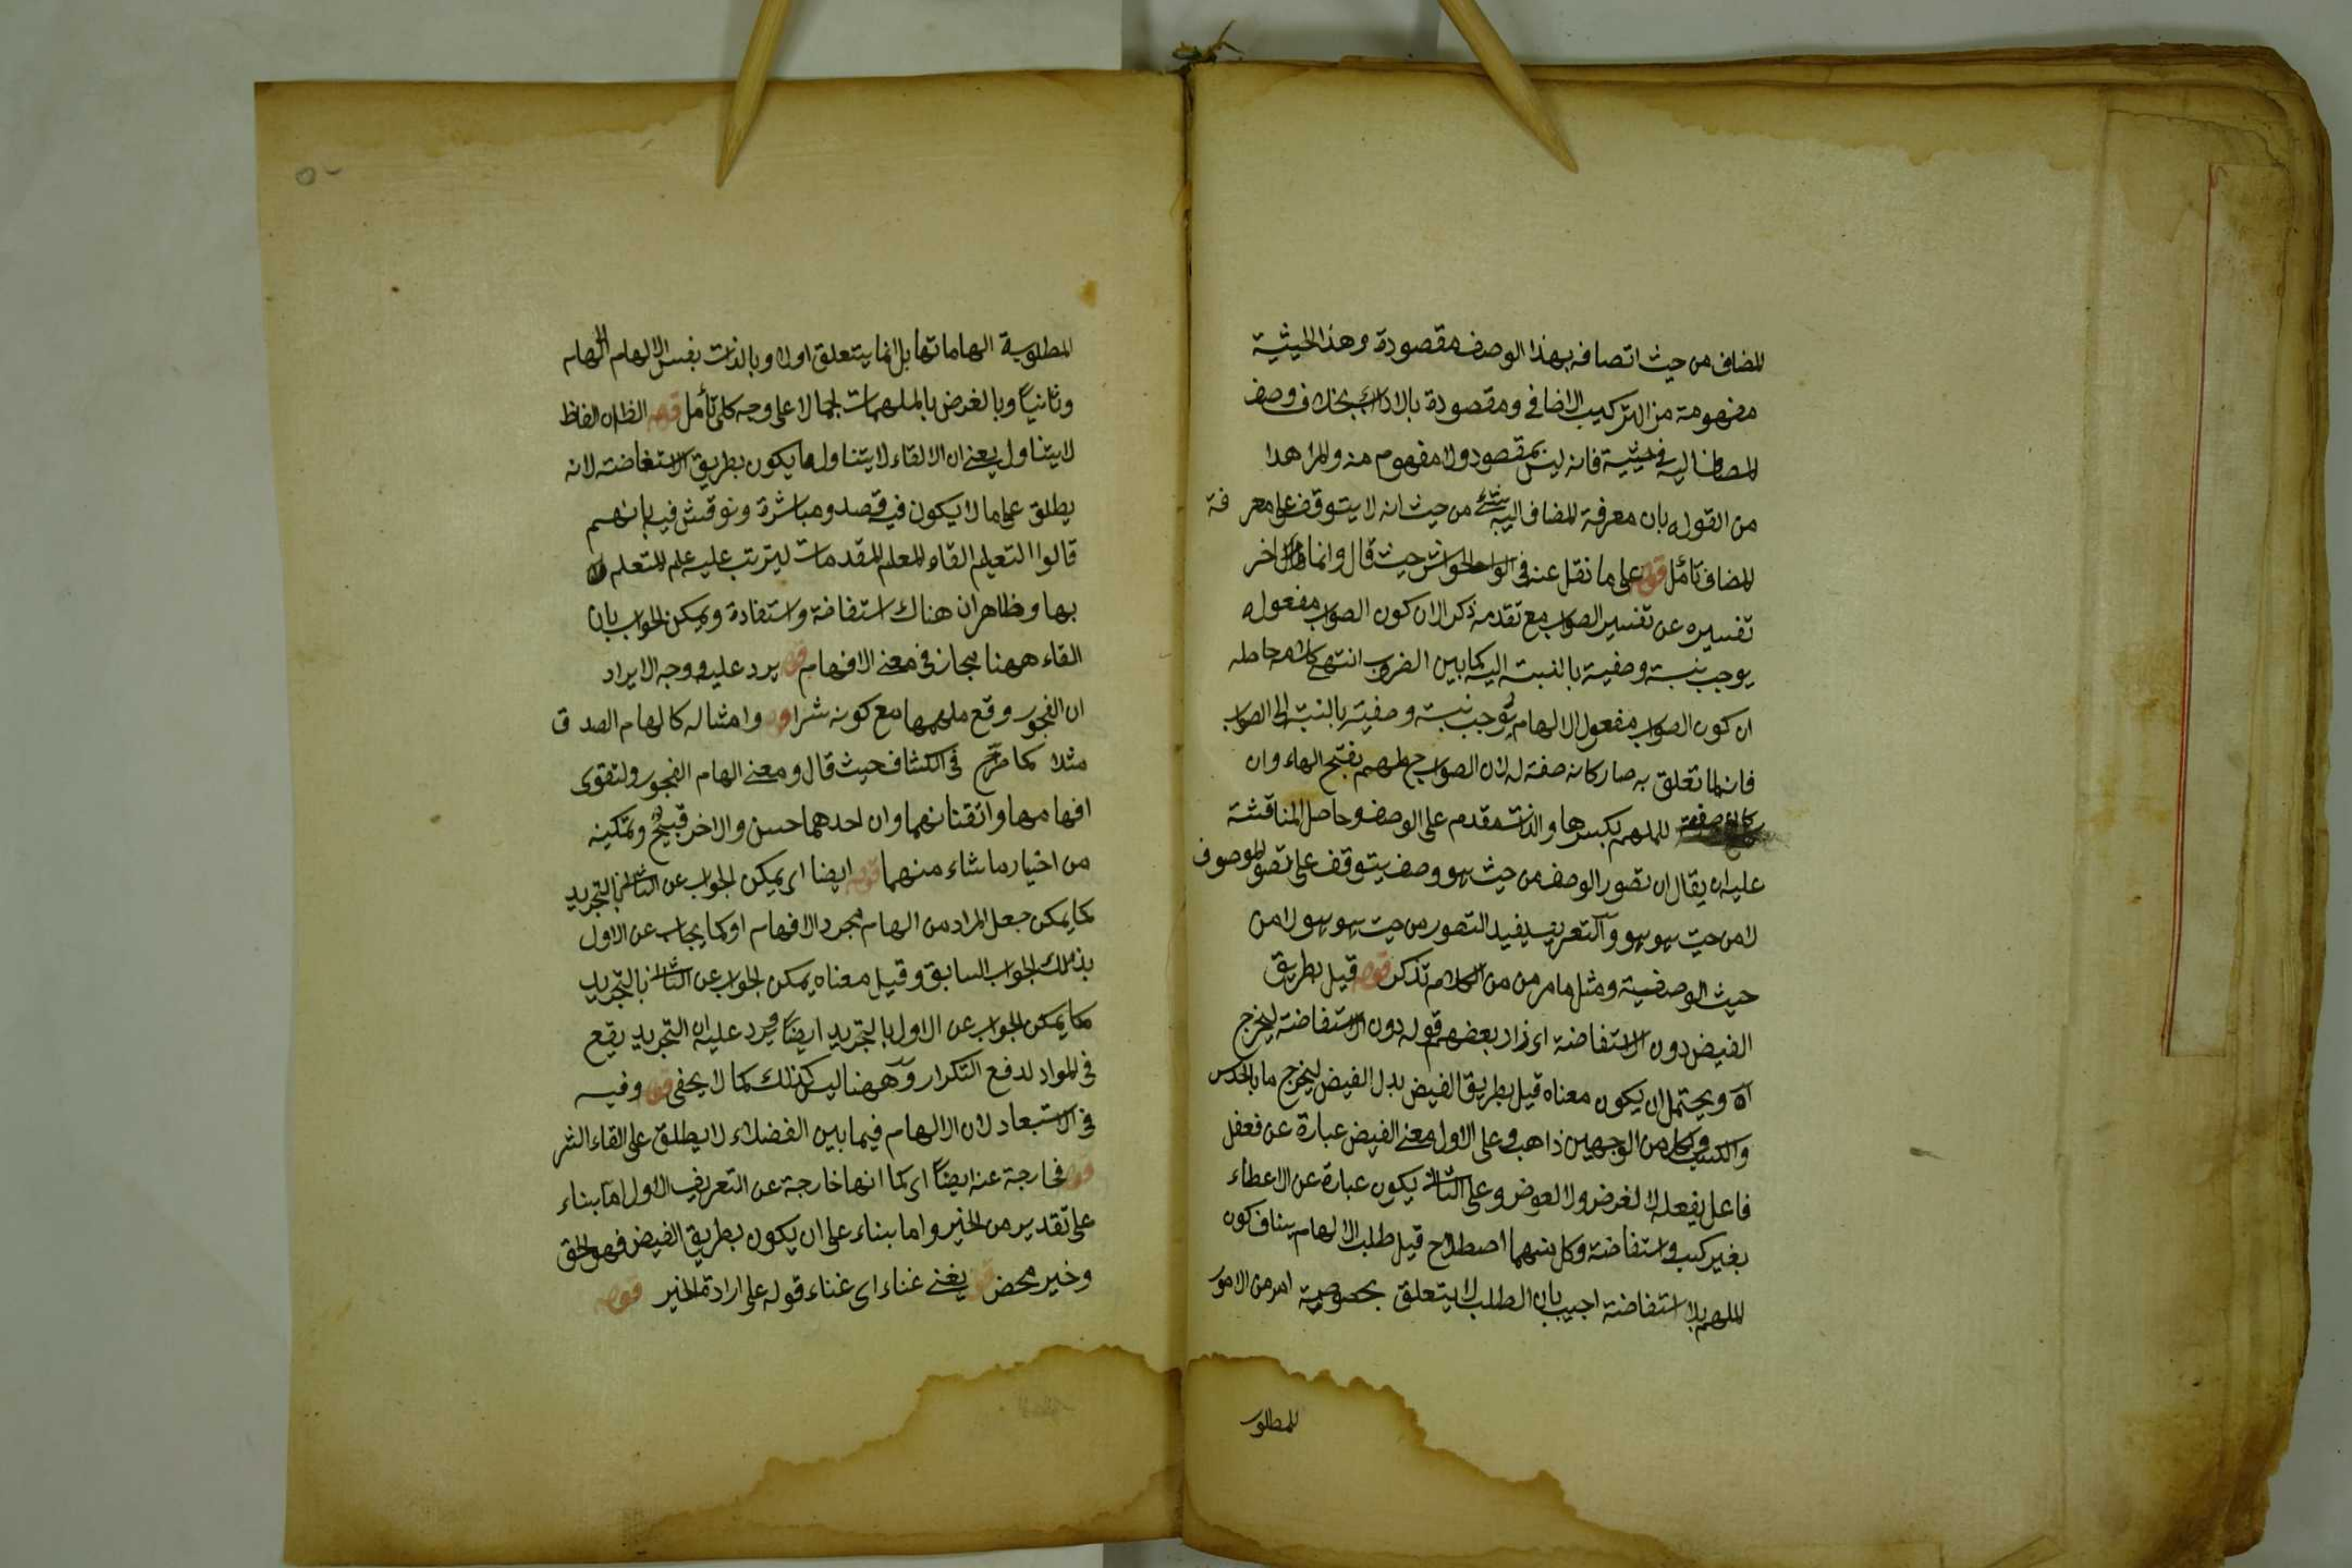 المضاف من حيث اتصافه بهذا الوصف مقصودة وهذا الحيثية
مفهومة من التركيب الاضافى ومقصودة بالادراك بخلاف وصف
المضاف اليه فانه ليس بمقصود ولا مفهوم منه والمراد هذا
من القول بان معرفة المضاف اليه من حيث انه لا يتوقف على معرفة
المضاف تأمل قوله على ما نقل عنه فى الحواشى حيث قال وانما اخر
تفسيره عن تفسير الصواب مع تقدمه ذكرا لان كون الصواب مفعوله
يوجب نسبة وصفية بالنسبة اليه كما بين الضرب انتهى كلامه حاصله
ان كون الصواب مفعول الالهام يوجب نسبة وصفية بالنسبة الى الصواب
فانه لما تعلق به صار كانه صفة له لان الصواب ملهم بفتح الهاء وان
للملهم بكسرها والذات مقدم على الوصف وحاصل المناقشة
عليه ان يقال ان تصور الوصف من حيث هو وصف يتوقف على تصور الموصوف
لا من حيث هو هو والتعريف يفيد التصور من حيث هو هو لا من
حيث الوصفية ومثل ما مر من من الكلام تذكر قوله قيل بطريق
الفيض دون الاستفاضة اى زاد بعضهم قوله دون الاستفاضة ليخرج
اه ويحتمل ان يكون معناه قيل بطريق الفيض بدل الفيض ليخرج ما بالحدس
والكسب وكل من الوجهين ذاهب وعلى الاول معنى الفيض عبارة عن فعل
فاعل يفعل لا لغرض ولا لعوض وعلى الثانى يكون عبارة عن الاعطاء
بغير كسب واستفاضة وكل منهما اصطلاح قيل طلب الالهام ينافى كون
الملهم بلا استفاضة اجيب بان الطلب لا يتعلق بخصوصية امر من الامور
المطلو
المطلوبة الهاماتها بل انما يتعلق اولا وبالذات بنفس الالهام الهام
وثانيا وبالغرض بالملهمات اجمالا على وجه كلى تأمل قوله الظ ان الفاظ
لا يتناول يعنى ان الالقاء لا يتناول ما يكون بطريق الاستفاضة لانه
يطلق على ما لا يكون فيه قصد ومباشرة ونوقش فيه بانهم
قالوا التعليم القاء المعلم المقدمات ليترتب عليه علم المتعلم
بها وظاهر ان هناك استفاضة واستفادة ويمكن الجواب بان
القاء ههنا مجاز فى معنى الافهام قوله يرد عليه ووجه الايراد
ان الفجور وقع ملهمها مع كونه شرا قوله وامثاله كالهام الصدق
مثلا كما صرح فى الكشاف حيث قال ومعنى الهام الفجور والتقوى
افهامها واتقانهما وان احدهما حسن والاخر قبيح وتمكينه
من اختيار ما شاء منهما قوله ايضا اى يمكن الجواب عن الثانى بالتجريد
كما يمكن جعل المراد من الهام مجرد الافهام او كما يجاب عن الاول
بذلك الجواب السابق وقيل معناه يمكن الجواب عن الثانى بالتجريد
كما يمكن الجواب عن الاول بالتجريد ايضا ويرد عليه ان التجريد يقع
فى المواد لدفع التكرار وههنا ليس كذلك كما لا يخفى قوله وفيه
فى الاستبعاد لان الالهام فيما بين الفضلاء لا يطلق على القاء الشر
قوله فخارجة عنه ايضا اى كما انها خارجة عن التعريف الاول اما بناء
على تقدير من الخير واما بناء على ان يكون بطريق الفيض فهو الحق
وخير محض قوله يغنى غناء اى غناء قوله على ارادة الخير قوله